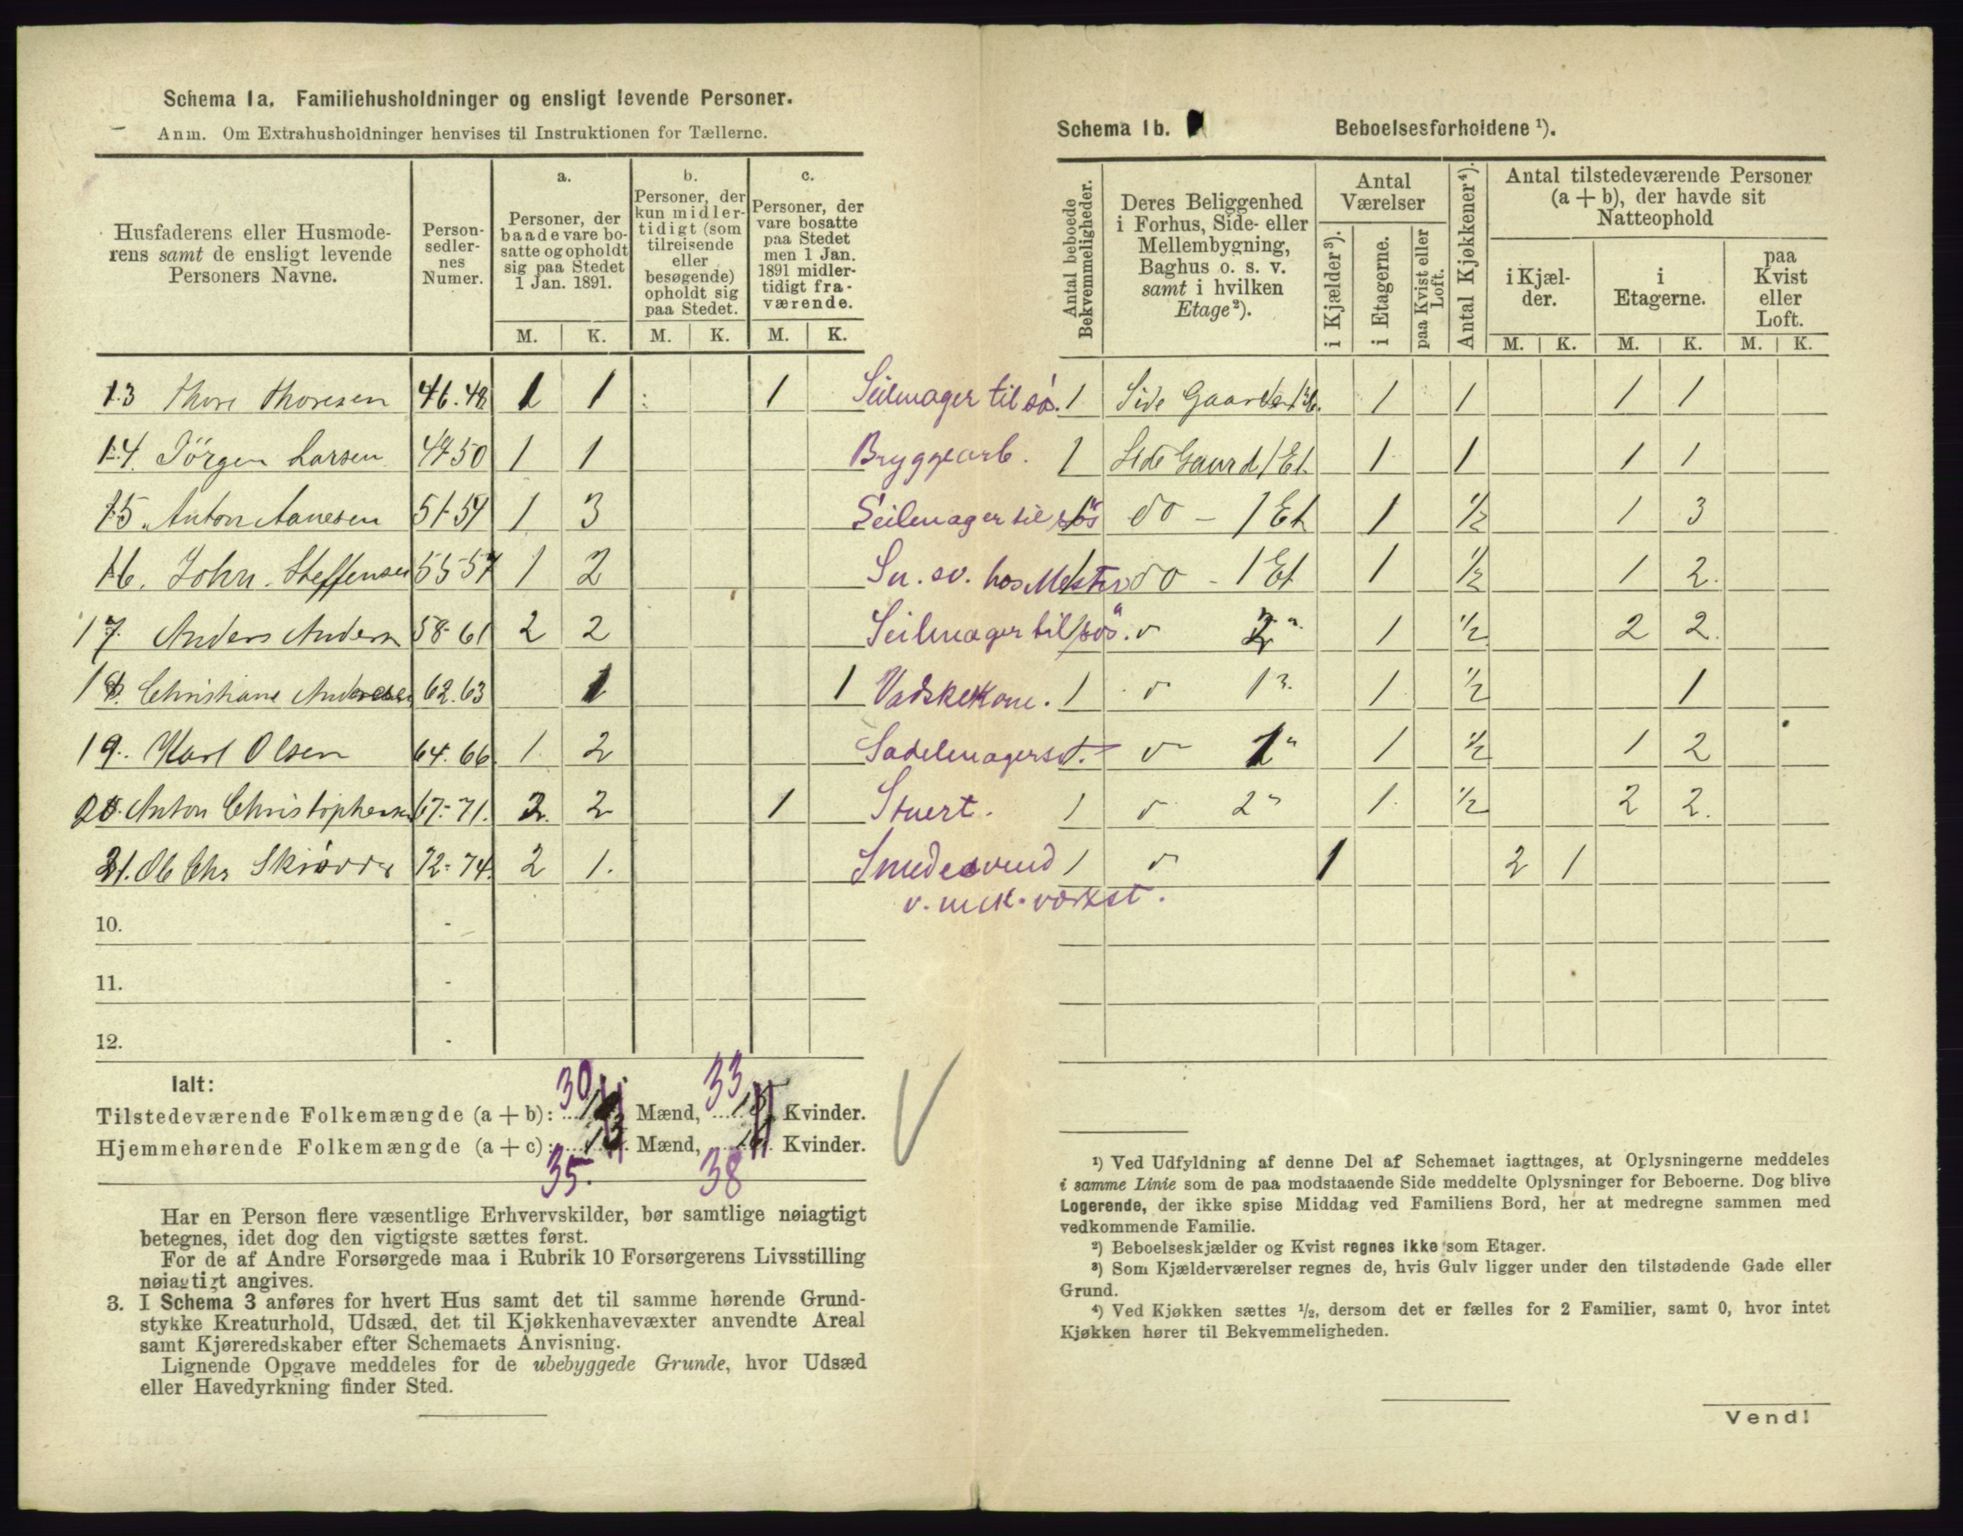 Schema 1a. Familiehusholdninger og ensligt levende Personer.
Anm. Om Extrahusholdninger henvises til Instruktionen for Tællerne.
Husfaderens eller Husmoderens samt de ensligt levende Personers Navne.
Personsedlernes Numer.
a. Personer, der baade vare bosatte og opholdt sig paa Stedet 1 Jan. 1891.
b. Personer, der kun midlertidigt (som tilreisende eller besøgende) opholdt sig paa Stedet.
c. Personer, der vare bosatte paa Stedet men 1 Jan. 1891 midlertidigt fraværende.
M. K. M. K. M. K.
13 Thore Thoresen 46.48 1 1 1 Seilmager til sös.
14. Jörgen Larsen 49 50 1 1 Bryggearb.
15. Anton Aanesen 51-54 1 3 Seilmager til sös
16. John Steffensen 55-57 1 2 Sn. sv. hos Mester
17. Anders Anders 58-61 2 2 Seilmager til sös.
18. Christiane Andersen 62.63 1 1 Vadskekone.
19. Karl Olsen 64.66 1. 2 Sadelmagersv.
20. Anton Christophersen 67-71. 2. 2 1 Stuert.
21. Ole Chr 72-74. 2 1. Smedesvend
v. mek. værkst.
10. -
11. -
12. -
Ialt:
30 33
Tilstedeværende Folkemængde (a + b): Mænd, Kvinder.
Hjemmehørende Folkemængde (a + c): Mænd, Kvinder.
35. 38
Har en Person flere væsentlige Erhvervskilder, bør samtlige nøiagtigt
betegnes, idet dog den vigtigste sættes først.
For de af Andre Forsørgede maa i Rubrik 10 Forsørgerens Livsstilling
nøiagtigt angives.
3. I Schema 3 anføres for hvert Hus samt det til samme hørende Grund-
stykke Kreaturhold, Udsæd, det til Kjøkkenhavevæxter anvendte Areal
samt Kjøreredskaber efter Schemaets Anvisning.
Lignende Opgave meddeles for de ubebyggede Grunde, hvor Udsæd
eller Havedyrkning finder Sted.
Schema 1b. Beboelsesforholdene ¹).
Antal beboede Bekvemmeligheder.
Deres Beliggenhed i Forhus, Side- eller Mellembygning, Baghus o. s. v. samt i hvilken Etage ²).
Antal Værelser
i Kjælder ³).
i Etagerne.
paa Kvist eller Loft.
Antal Kjøkkener ⁴).
Antal tilstedeværende Personer (a + b), der havde sit Natteophold
i Kjælder.
i Etagerne.
paa Kvist eller Loft.
M. K. M. K. M. K.
1 Side Gaard 1 1 1 1
1 Side Gaard 1 Et. 1 1 1 1
1 do - 1 Et 1 ½ 1 3
1 do - 1 Et 1 ½ 1 2.
1 " 2 " 1 ½ 2 2.
1 " 1 " 1 ½ 1
" 1 " 1 ½ 1 2
1 " 2 " 1. ½ 2 2.
1 " 1 2 1
¹) Ved Udfyldning af denne Del af Schemaet iagttages, at Oplysningerne meddeles
i samme Linie som de paa modstaaende Side meddelte Oplysninger for Beboerne. Dog blive
Logerende, der ikke spise Middag ved Familiens Bord, her at medregne sammen med
vedkommende Familie.
²) Beboelseskjælder og Kvist regnes ikke som Etager.
³) Som Kjælderværelser regnes de, hvis Gulv ligger under den tilstødende Gade eller
Grund.
⁴) Ved Kjøkken sættes ½, dersom det er fælles for 2 Familier, samt 0, hvor intet
Kjøkken hører til Bekvemmeligheden.
Vend!